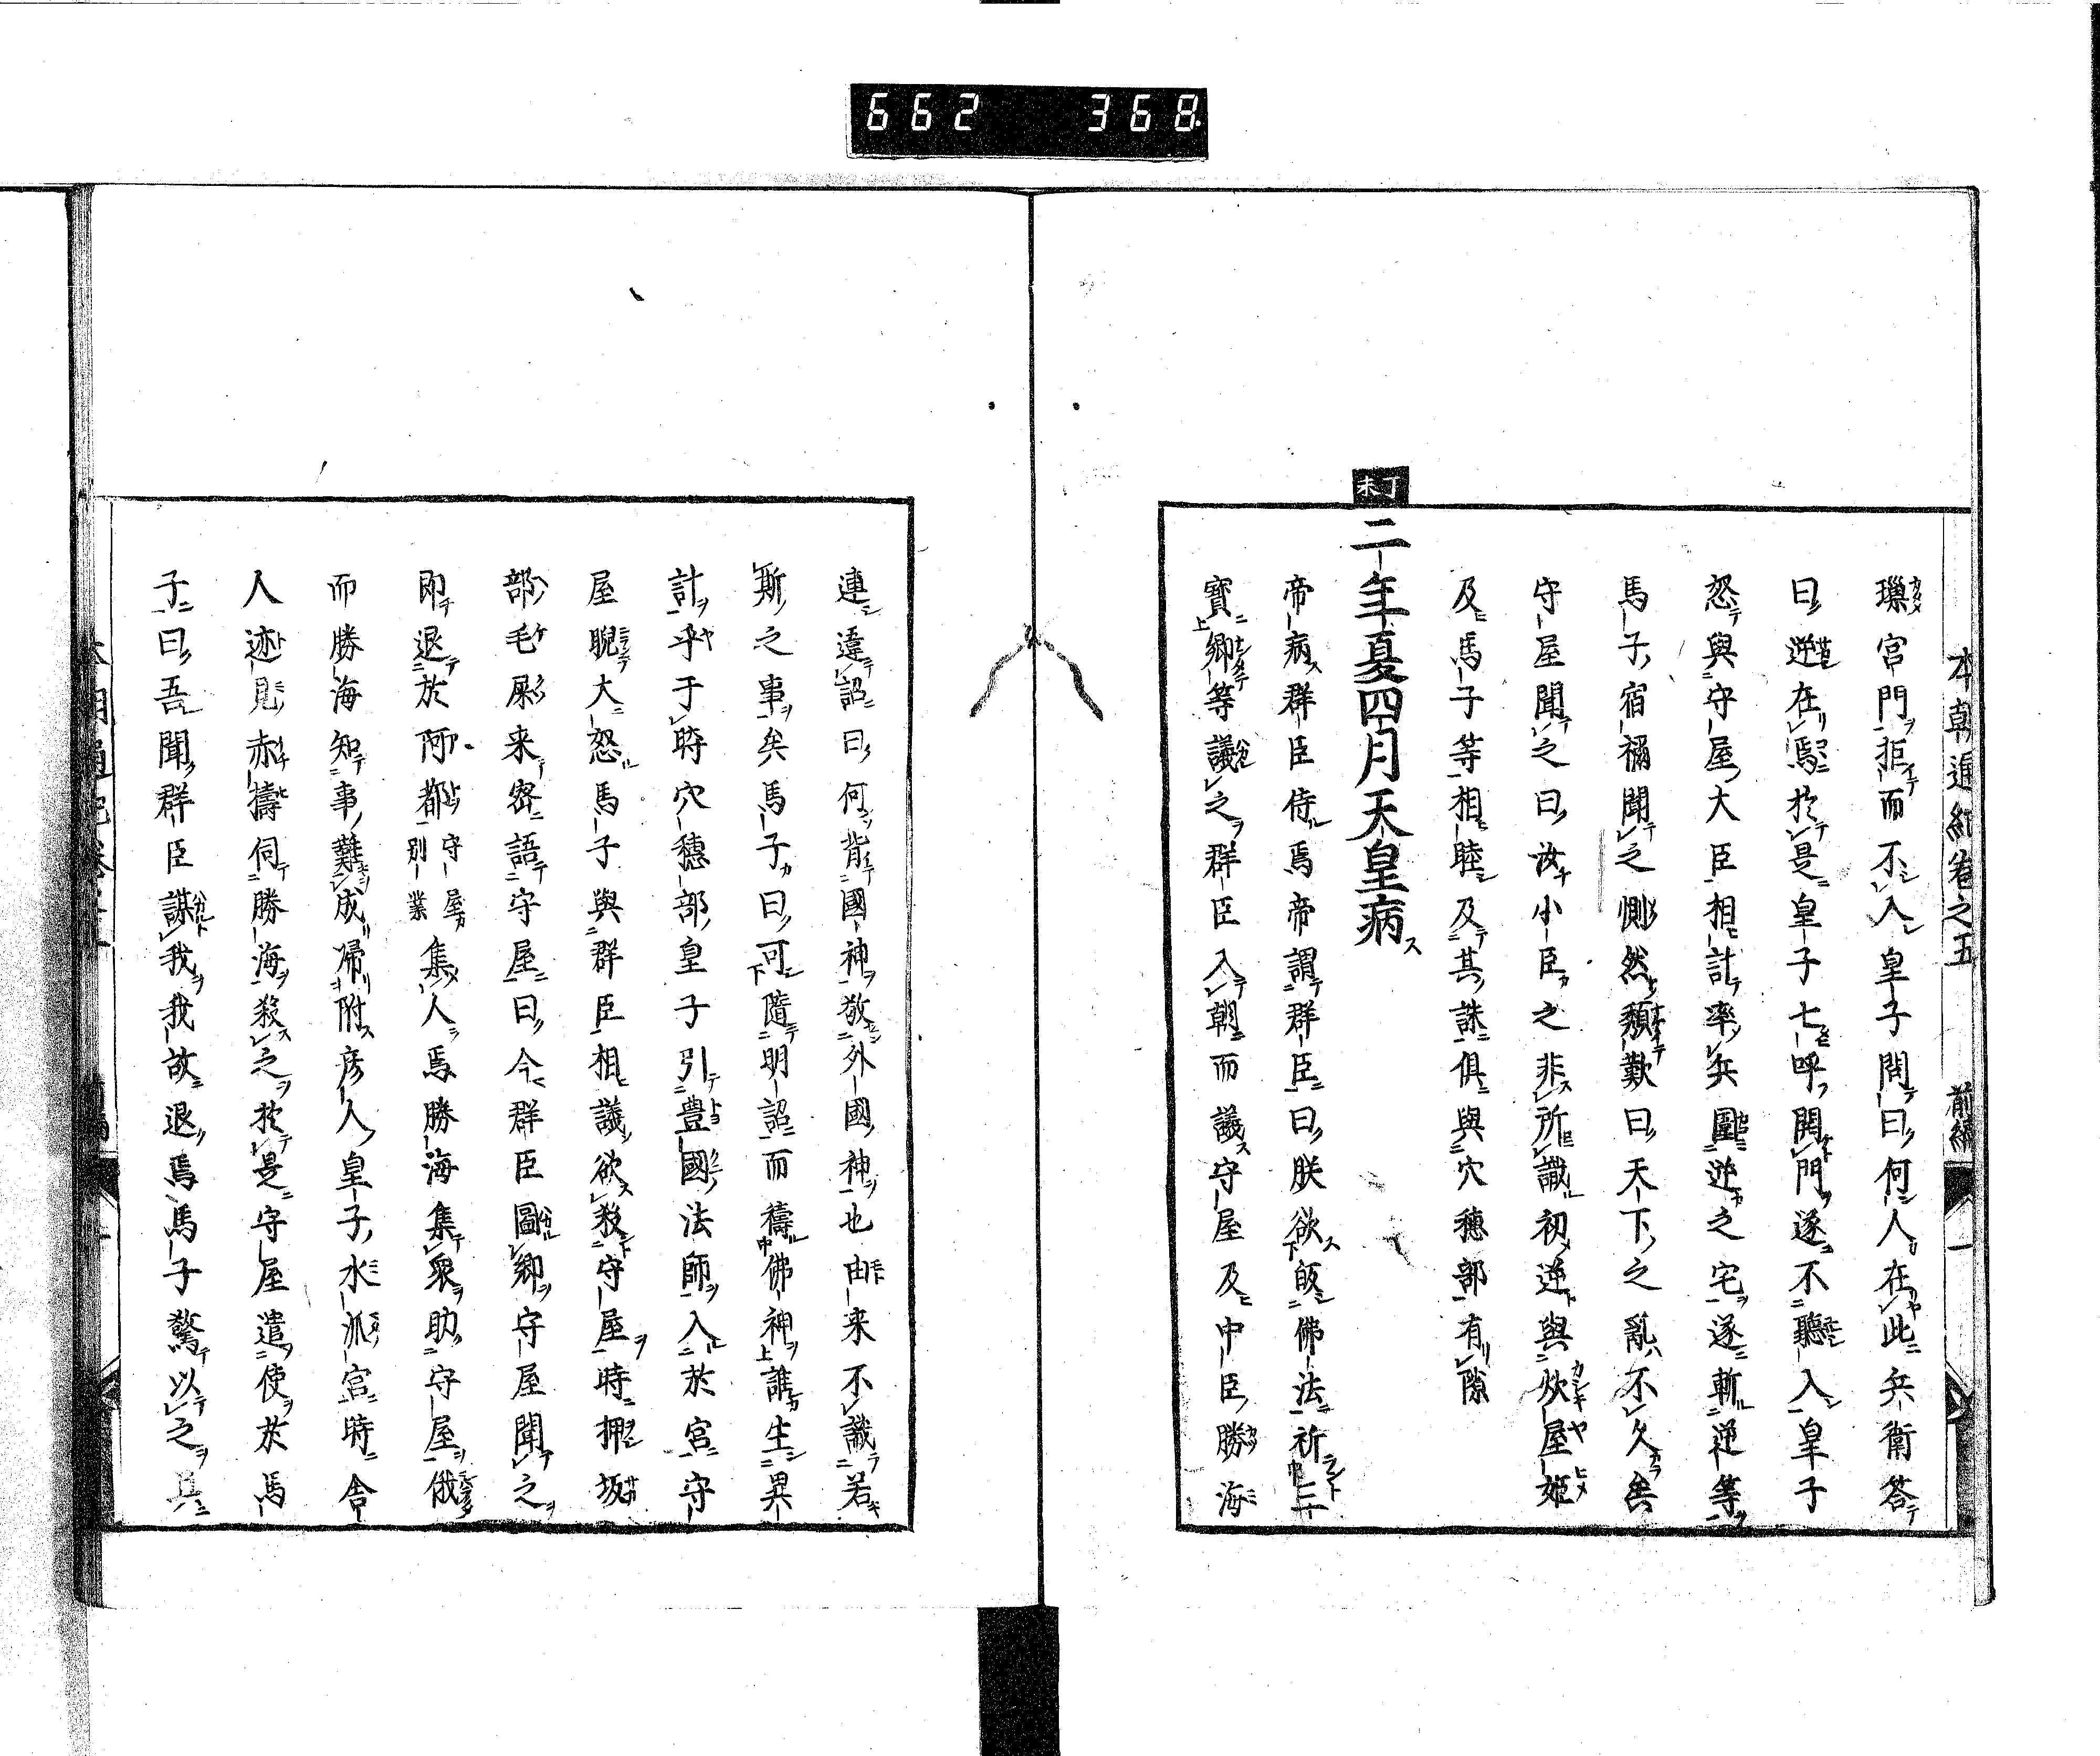 662 368
本朝通紀卷之五 前編 一
璖宮門拒而不入皇子問曰何人在此兵衛答
曰逆在焉於是皇子七呼開門遂不聽入皇子
怒與守屋大臣相計率兵圍逆之宅遂斬逆等
馬子宿禰聞之惻然頽歎曰天下之亂不久矣
守屋聞之曰汝小臣之非所識初逆與炊屋姫
及馬子等相睦及其誅俱與穴穗部有隙
丁未
二年夏四月天皇病
帝病群臣侍焉帝謂群臣曰朕欲皈佛法祈三
寳卿等議之群臣入朝而議守屋及中臣勝海
連違詔曰何背國神敬外國神也由来不識若
斯之事矣馬子曰可隨明詔而禱佛神誰生異
計乎于時穴穗部皇子引豊國法師入於宮守
屋睨大怒馬子與群臣相議欲殺守屋時押坂
部毛屎来密語守屋曰今群臣圖卿守屋聞之
即退於阿都守屋別業集人焉勝海集衆助守屋俄
而勝海知事難成帰附彦人皇子水派宮時舎
人迹見赤擣伺勝海殺之於是守屋遣使於馬
子曰吾聞群臣謀我我故退焉馬子驚以之具